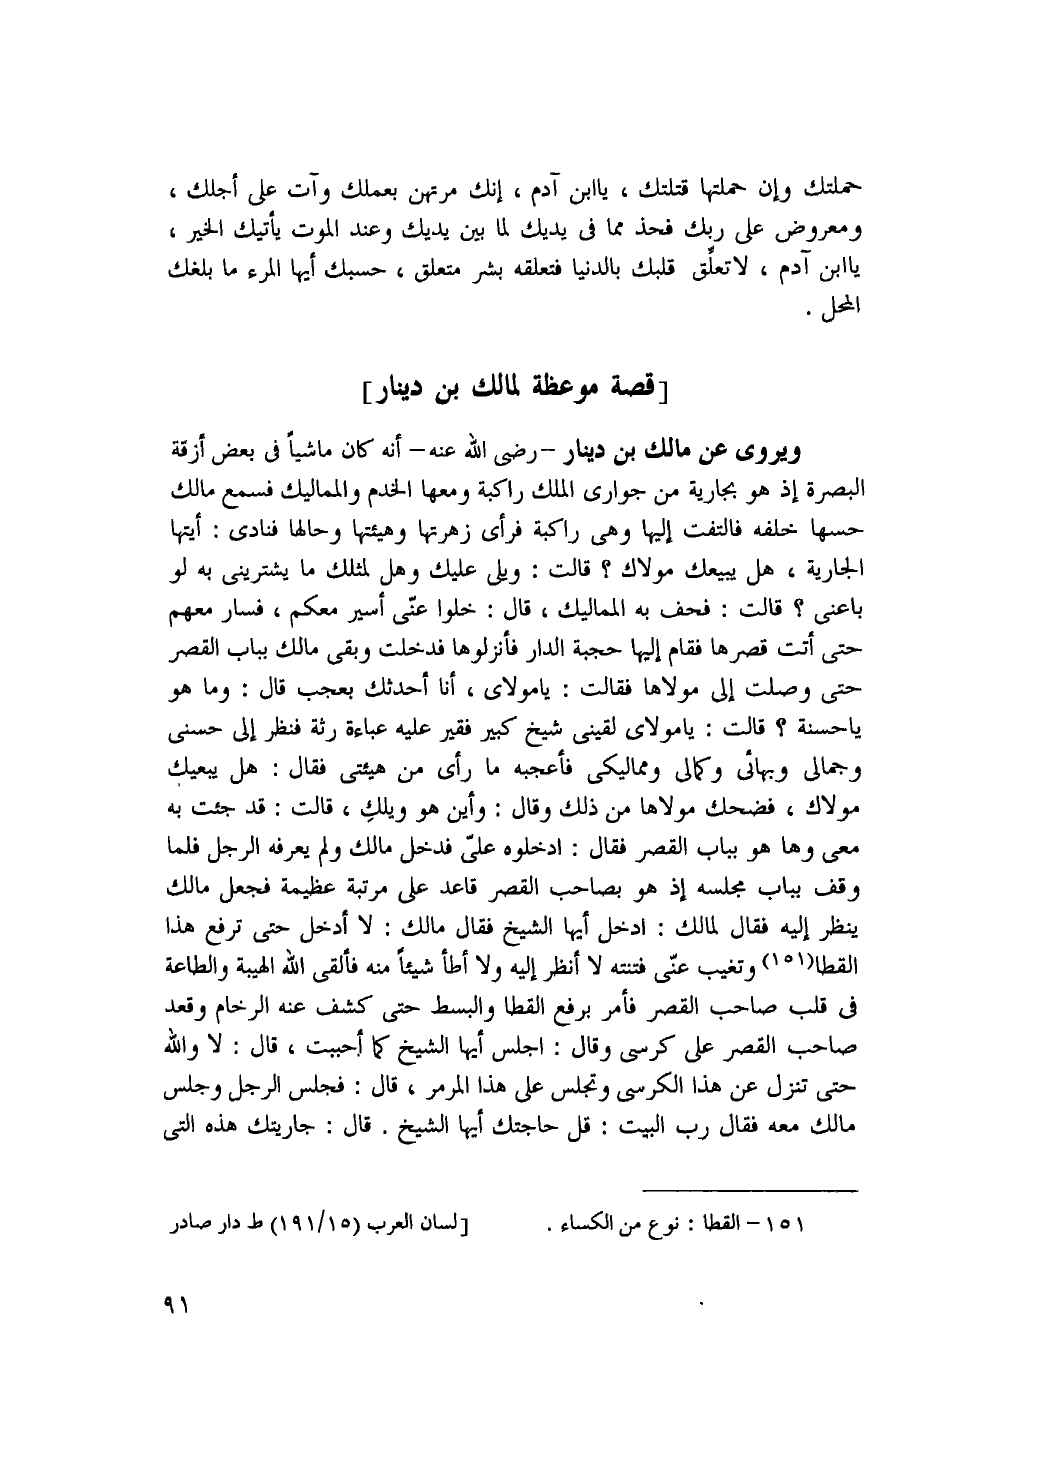 حملتك وإن حملتها قتلتك ، ياابن آدم ، إنك مرتهن بعملك وآت على أجلك ،
ومعروض على ربك فحذ مما فى يديك لما بين يديك وعند الموت يأتيك الخير ،
ياابن آدم ، لاتعلِّق قلبك بالدنيا فتعلقه بشر متعلق ، حسبك أيها المرء ما بلغك
المحل .
[قصة موعظة لمالك بن دينار]
ويروى عن مالك بن دينار -رضى الله عنه- أنه كان ماشياً فى بعض أزقة
البصرة إذ هو بجارية من جوارى الملك راكبة ومعها الخدم والمماليك فسمع مالك
حسها خلفه فالتفت إليها وهى راكبة فرأى زهرتها وهيئتها وحالها فنادى : أيتها
الجارية ، هل يبيعك مولاك ؟ قالت : ويلى عليك وهل لمثلك ما يشترينى به لو
باعنى ؟ قالت : فحف به المماليك ، قال : خلوا عنّى أسير معكم ، فسار معهم
حتى أتت قصرها فقام إليها حجبة الدار فأنزلوها فدخلت وبقى مالك بباب القصر
حتى وصلت إلى مولاها فقالت : يامولاى ، أنا أحدثك بعجب قال : وما هو
ياحسنة ؟ قالت : يامولاى لقينى شيخ كبير فقير عليه عباءة رثة فنظر إلى حسنى
وجمالى وبهائى وكمالى ومماليكى فأعجبه ما رأى من هيئتى فقال : هل يبيعك
مولاك ، فضحك مولاها من ذلك وقال : وأين هو ويلكِ ، قالت : قد جئت به
معى وها هو بباب القصر فقال : ادخلوه علىّ فدخل مالك ولم يعرفه الرجل فلما
وقف بباب مجلسه إذ هو بصاحب القصر قاعد على مرتبة عظيمة فجعل مالك
ينظر إليه فقال لمالك : ادخل أيها الشيخ فقال مالك : لا أدخل حتى ترفع هذا
القطا(١٥١) وتغيب عنّى فتنته لا أنظر إليه ولا أطأ شيئاً منه فألقى الله الهيبة والطاعة
فى قلب صاحب القصر فأمر برفع القطا والبسط حتى كشف عنه الرخام وقعد
صاحب القصر على كرسى وقال : اجلس أيها الشيخ كما أحببت ، قال : لا والله
حتى تنزل عن هذا الكرسى وتجلس على هذا المرمر ، قال : فجلس الرجل وجلس
مالك معه فقال رب البيت : قل حاجتك أيها الشيخ . قال : جاريتك هذه التى
١٥١- القطا : نوع من الكساء . [لسان العرب (١٩١/١٥) ط دار صادر
٩١